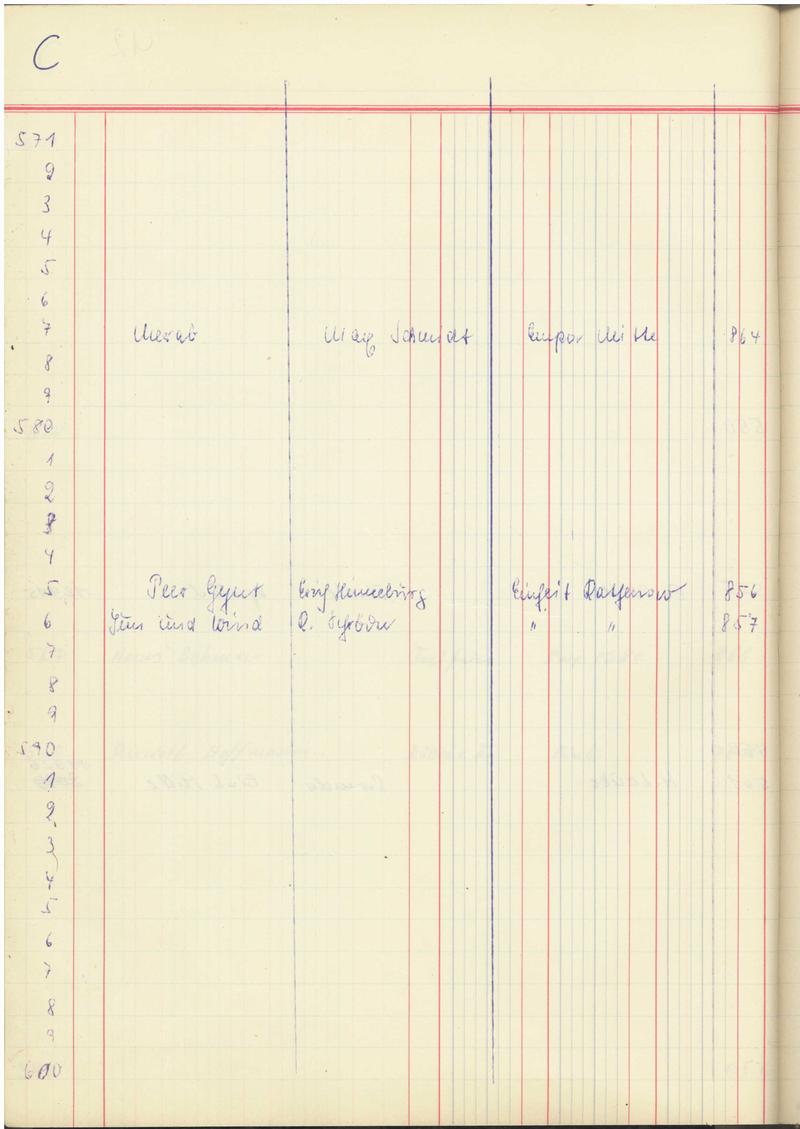 C
571
2
3
4
5
6
7 Merab Max Schmidt Empor Mitte 864
8
9
580
1
2
3
4
5 Peer Gynt Erich Hinneburg Einheit Rathenow 856
6 und Wind O. Schröder " " 857
7
8
9
590
1
2
3
4
5
6
7
8
9
600